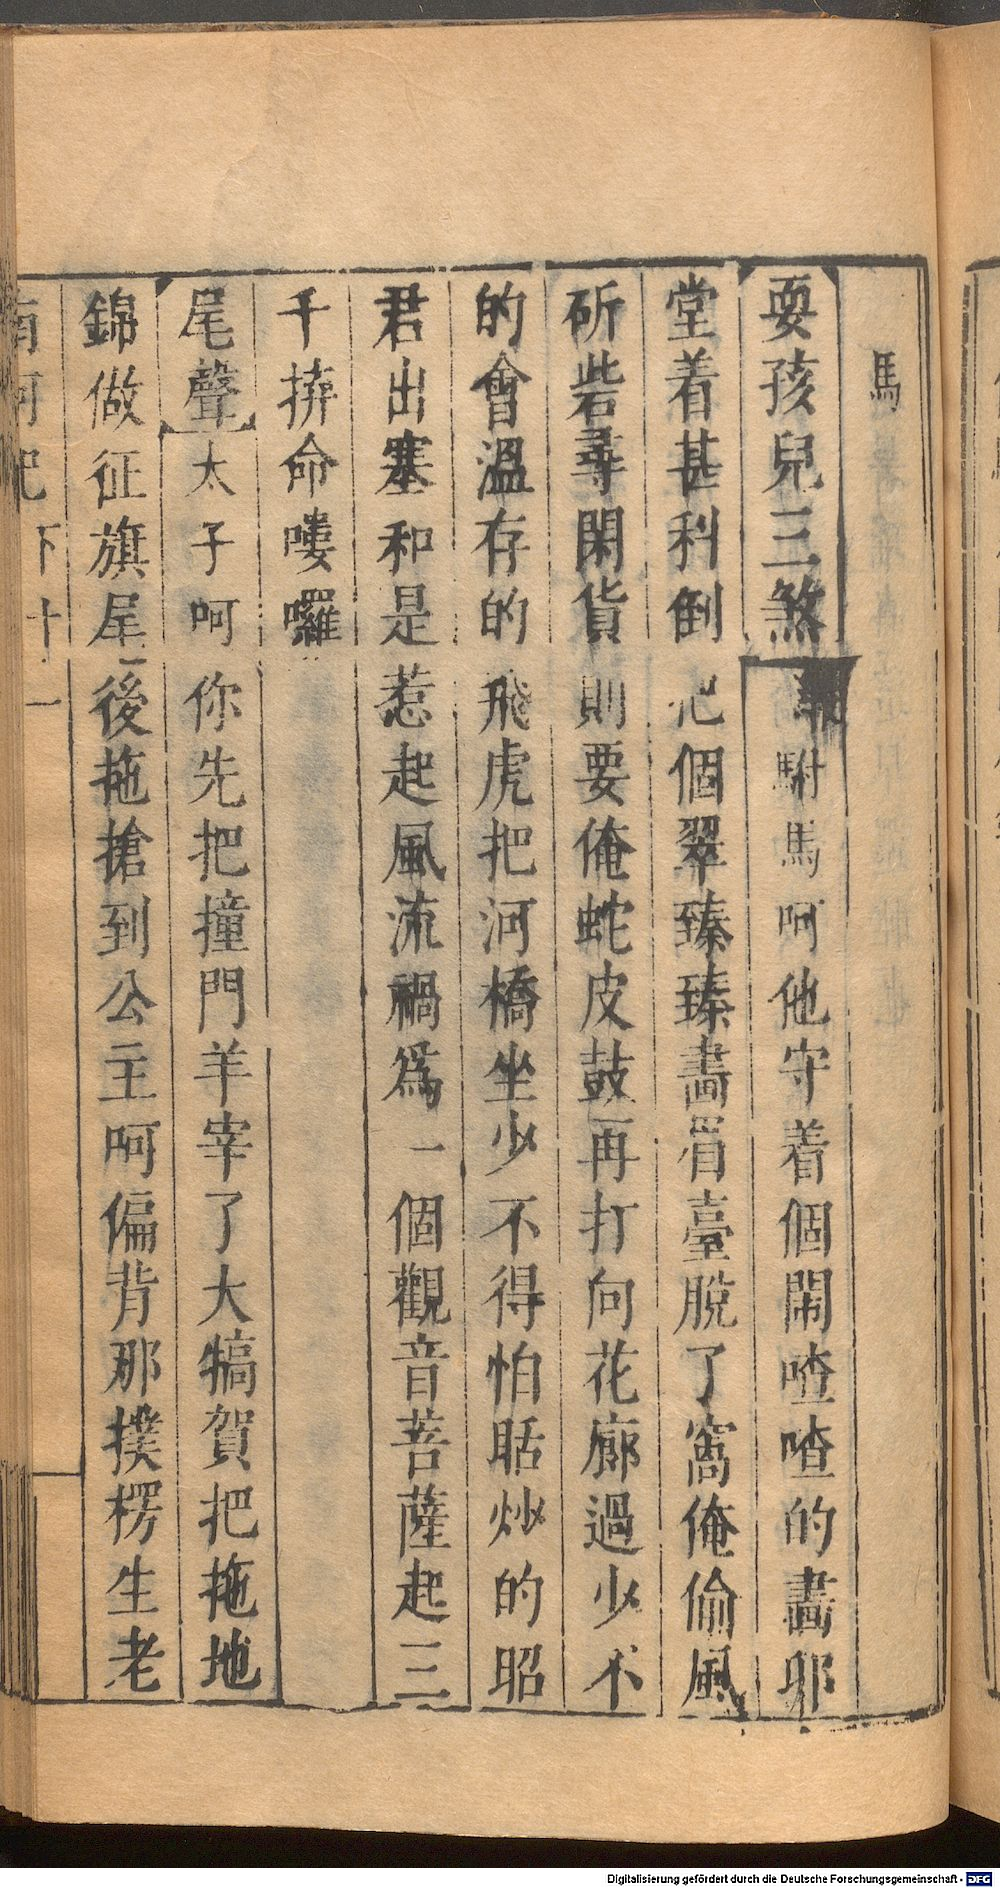 馬
耍孩兒三煞 駙馬呵他守着個鬧喳喳的畫
堂着甚科倒 把個翠臻臻畫眉臺脫了窩俺偷風
斫砦尋閑貨 則要俺蛇皮鼓再打向花廊過少不
的會溫存的飛虎把河橋坐少不得怕聒炒的昭
君出塞和是惹起風流禍爲一個觀音菩薩起三
千拚命嘍囉
尾聲 太子呵你先把撞門羊宰了大犒賀把拖地
錦做征旗尾後拖搶到公主呵偏背那撲楞生老
南柯記 下 十一
Digitalisierung gefördert durch die Deutsche Forschungsgemeinschaft - DFG